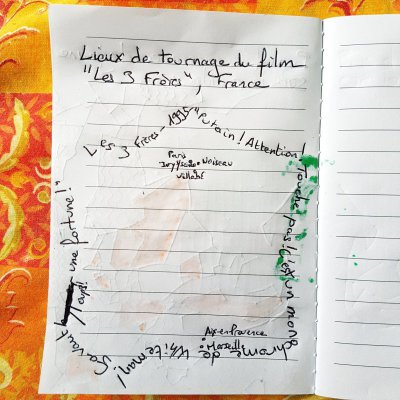 Lieux de tournage du film
"Les 3 Frères", France
Les 3 Frères - 1995 "Putain! Attention!
Touche pas! C'est un mono
chrome de Whiteman!
Ça vaut une fortune!"
Paris
Ivry/Seine • Noiseau
Villabé
Aix-en-Provence
• Marseille